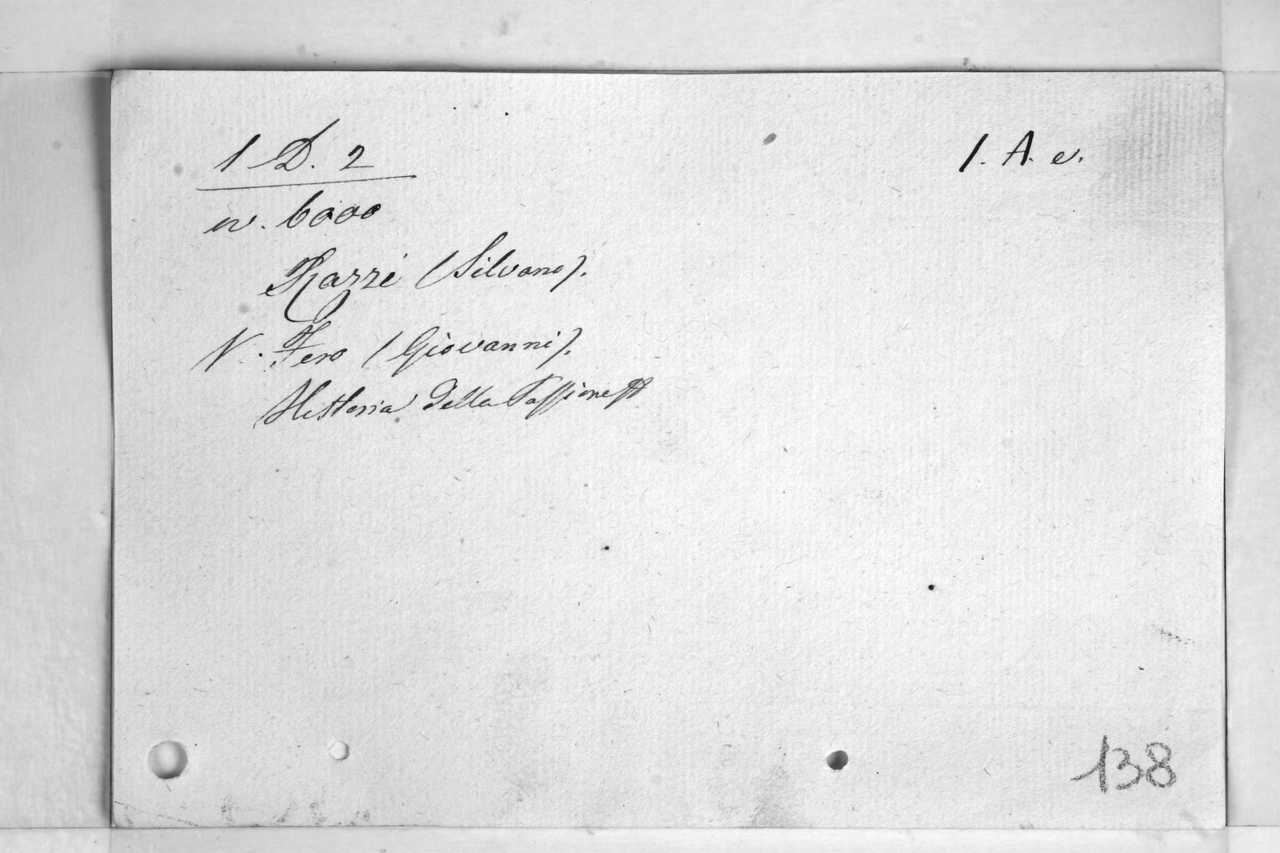 1 D. 2
1. A. e.
n. 6000
Razzi (Silvano).
V. Fero (Giovanni).
Historia della Passione
138